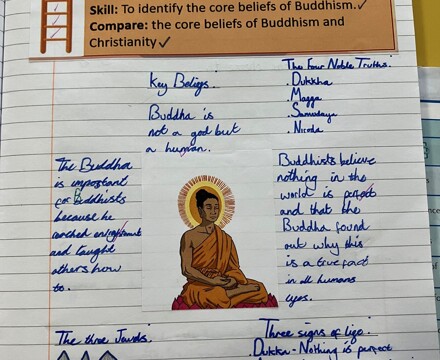 Skill: To identify the core beliefs of Buddhism.✓
Compare: the core beliefs of Buddhism and
Christianity ✓
Key Beliefs.
Buddha is
not a god but
a human.
The Four Noble Truths:
. Dukkha
. Magga
. Samudaya
. Niroda
The Buddha
is important
for Buddhists
because he
reached enlightment
and taught
others how
to.
Buddhists believe
nothing in the
world is perfect
and that the
Buddha found
out why this
is a true fact
in all humans
eyes.
The three Jewels.
Three signs of life.
. Dukka - Nothing is perfect